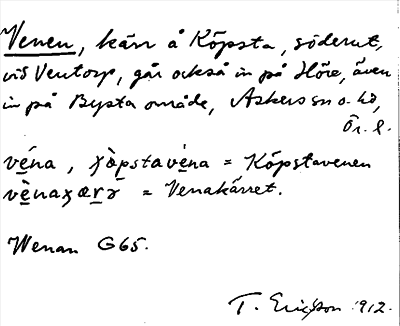 Venen, kärr å Köpsta, söderut,
vid Ventorp, går också in på Höre, även
in på Bysta område, Askers sn o. hd,
Ör. l.
vé̲na, χò̲pstavè̲na = Köpstavenen
vè̲naχær̲ɔ = Venakärret.
Wenan G65.
T. Ericsson 1912.